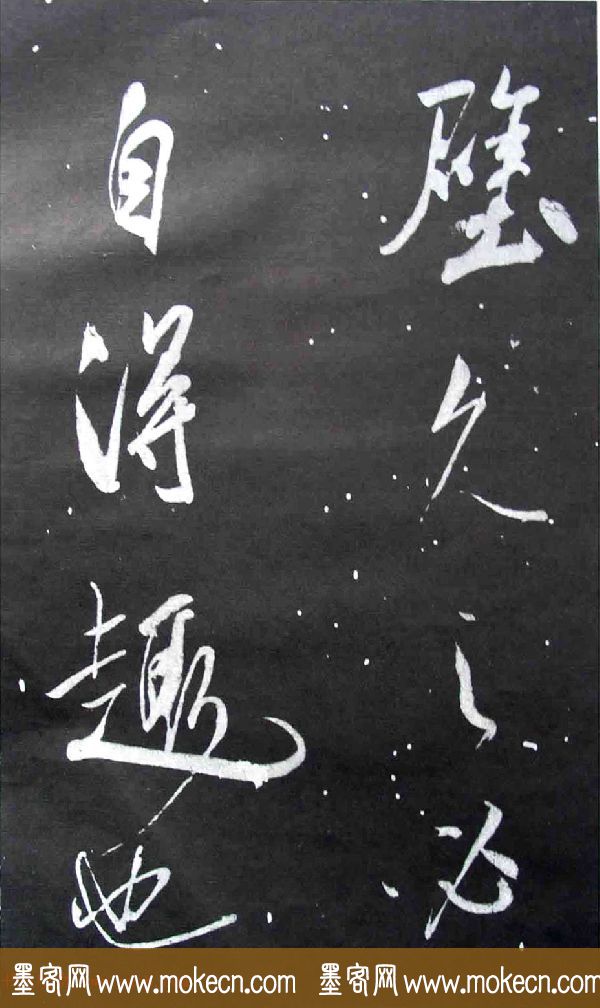 壁久之必
自得趣也
墨客网 www.mokecn.com 墨客网 www.mokecn.com